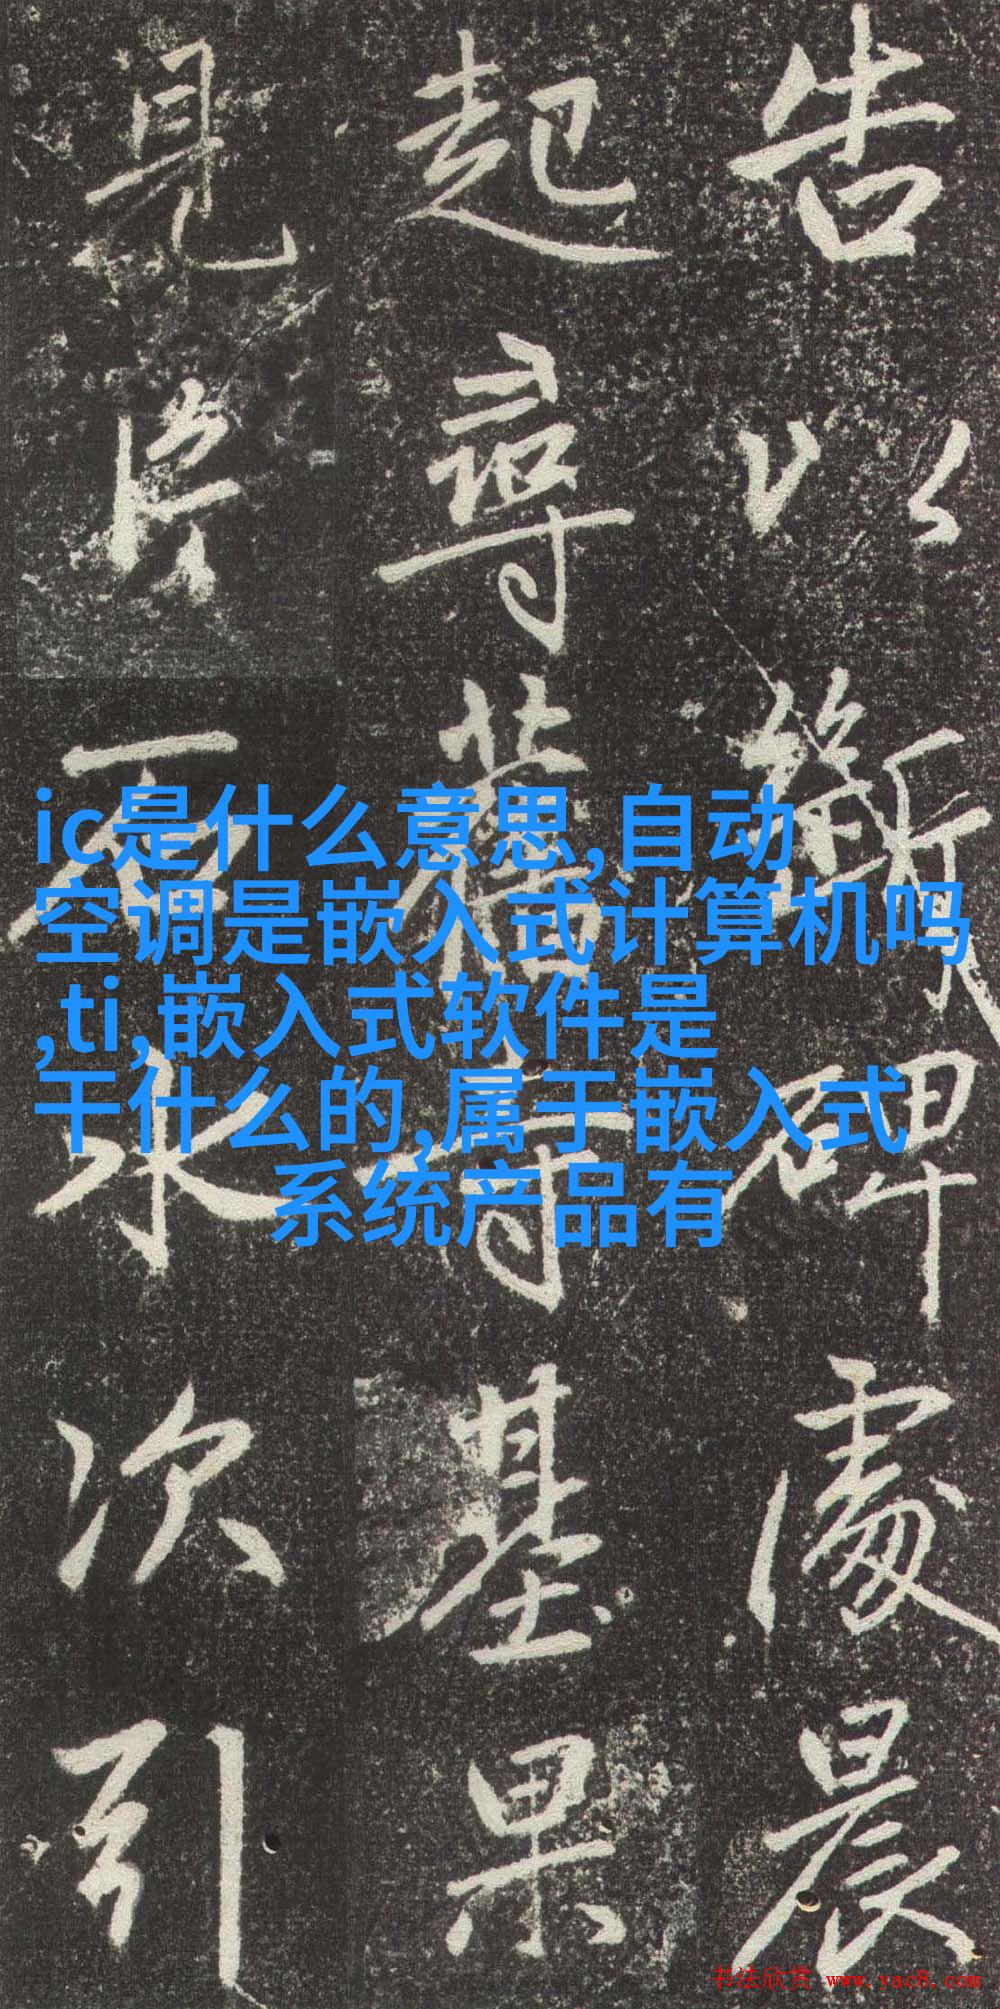 告以斷碑處晨
起尋舊寺基果
見片石水次引
ic是什么意思,自动
空调是嵌入式计算机吗
,ti,嵌入式软件是
干什么的,属于嵌入式
系统产品有
书法欣赏 www.yac8.com